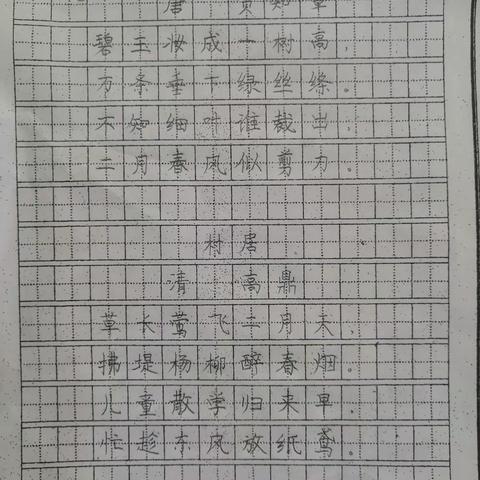 唐 贺知章
碧玉妆成一树高,
万条垂下绿丝绦。
不知细叶谁裁出,
二月春风似剪刀。
村居
清 高鼎
草长莺飞二月天,
拂堤杨柳醉春烟。
儿童散学归来早,
忙趁东风放纸鸢。